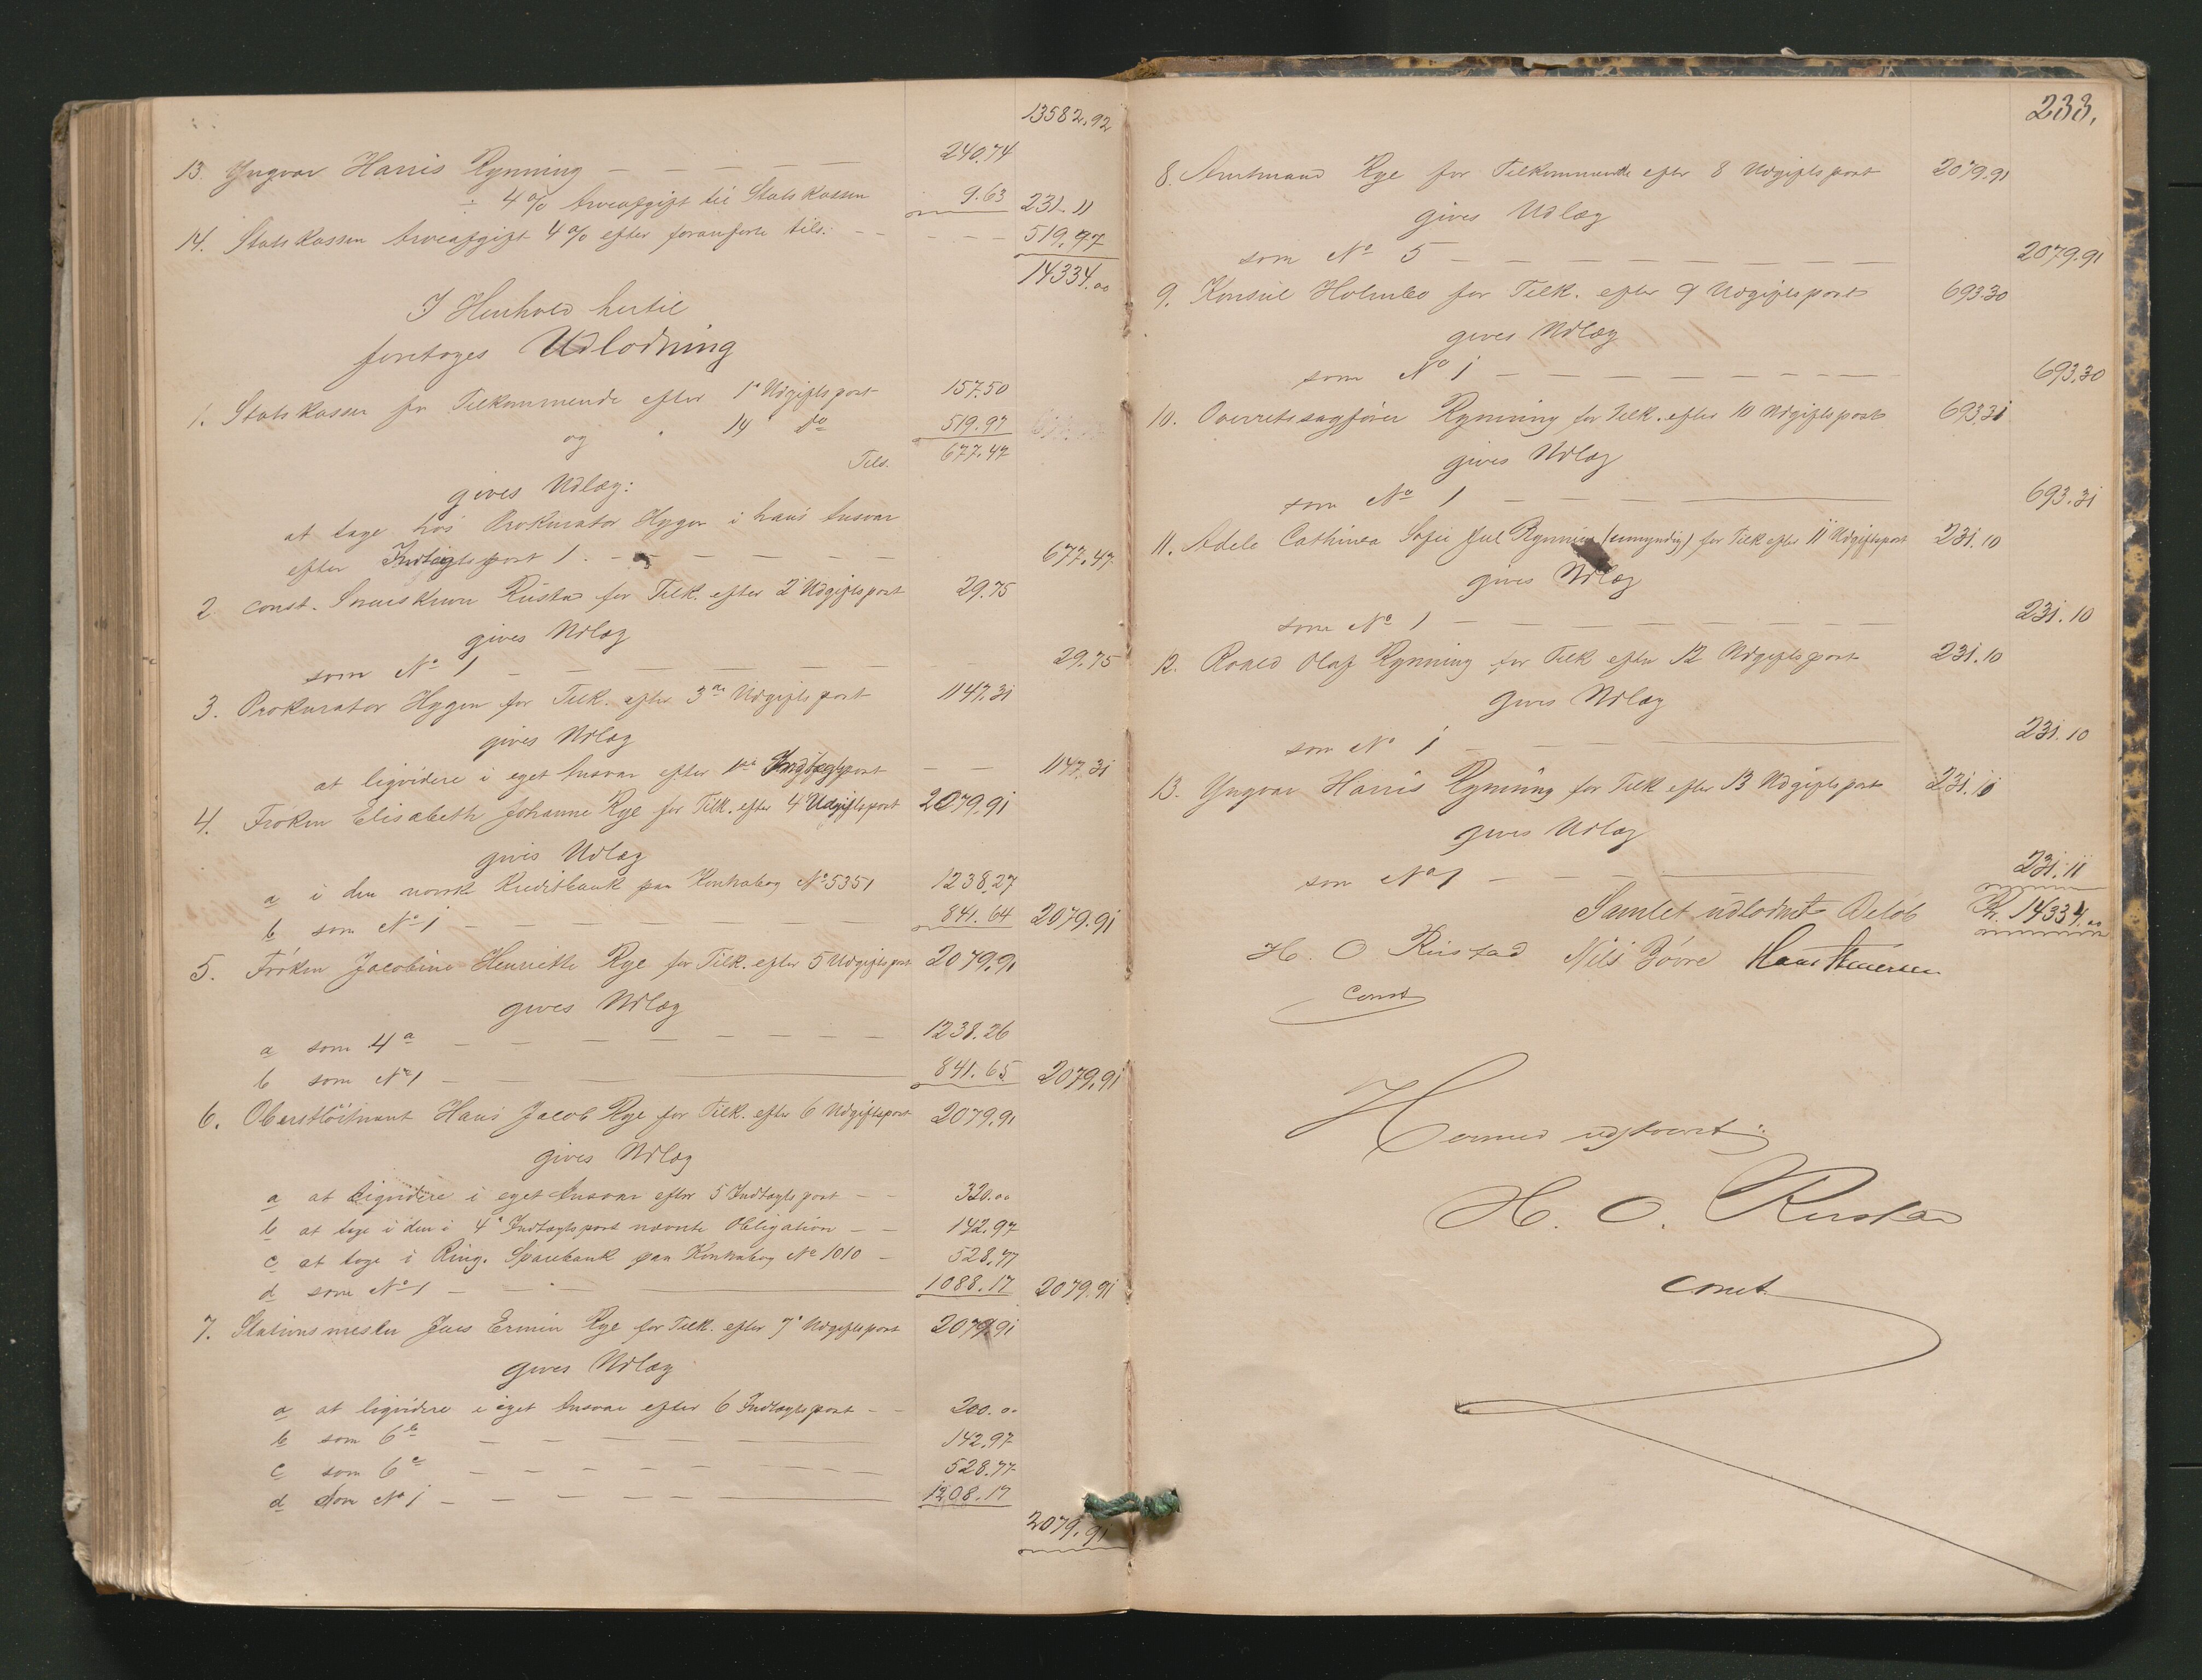 13582.92
13. Yngvar Harris Rynning — — — — 240.74
÷ 4% Arveafgift til Statskassen 9.63 231.11
14. Statskassen Arveafgift 4% efter foranførte tils. — — — — — 519.97
14334.00
I Henhold hertil
foretages Udlodning
1. Statskassen for Tilkommende efter 1ª Udgiftspost 157.50
og " 14 do 519.97
Tils. 677.47
gives Udlæg:
at tage hos Prokurator Hygen i hans Ansvar
efter Indtægtspost 1. — — — — — — 677.47
2 const. Sorenskriver Rustad for Tilk. efter 2' Udgiftspost 29.75
gives Udlæg
som No 1 — — — — — — — 29.75
3. Prokurator Hygen for Tilk. efter 3die Udgiftspost 1147.31
gives Udlæg
at ligvidere i eget Ansvar efter 1ste Indtægtspost — — 1147.31
4. Frøken Elisabeth Johanne Rye for Tilk. efter 4' Udgiftspost 2079.91
gives Udlæg
a i den norske Kreditbank paa Kontrabog No 5351 1238.27
b som No 1 — — — — — — 841.64 2079.91
5. Frøken Jacobine Henriette Rye for Tilk. efter 5 Udgiftspost 2079.91
gives Udlæg
a som 4 a — — — — — — — — 1238.26
b som No 1 — — — 841.65 2079.91
6. Oberstløitnant Hans Jacob Rye for Tilk. efter 6 Udgiftspost 2079.91
gives Udlæg
a at ligvidere i eget Ansvar efter 5 Indtægtspost — — 320.00
b at tage i den i 4' Indtægtspost nævnte Obligation — — 142.97
c at tage i Ring. Sparebank paa Kontrabog No 1010 — 528.77
d som No 1 — — — 1088.17 2079.91
7. Stationsmester Jens Ermin Rye for Tilk. efter 7' Udgiftspost 2079.91
gives Udlæg
a at ligvidere i eget Ansvar efter 6 Indtægtspost — — 200.00
b som 6 b — — — — — 142.97
c som 6 c — — — — — — — 528.77
d som No 1 — — — — — 1208.17
2079.91
233.
8. Amtmand Rye for Tilkommende efter 8 Udgiftspost 2079.91
gives Udlæg
som No 5 — — — — — — — — 2079.91
9. Konsul Holmbo for Tilk. efter 9 Udgiftspost 693.30
gives Udlæg
som No 1 — — — — — — — — 693.30
10. Overretssagfører Rynning for Tilk. efter 10 Udgiftspost 693.31
gives Udlæg
som No 1 — — — — 693.31
11. Adele Cathinca Sofie Jul Rynning (umyndig) for Tilk efter 11 Udgiftspost 231.10
gives Udlæg
som No 1 — — — — — — — — 231.10
12. Roald Olaf Rynning for Tilk efter 12 Udgiftspost 231.10
gives Udlæg
som No 1 — — — — 231.10
13. Yngvar Harris Rynning for Tilk efter 13 Udgiftspost 231.11
gives Udlæg
som No 1 — — — — 231.11
Samlet udloddet Beløb Kr. 14334.00
H. O Rustad Nils Hans
const
Hermed udskrevet:
H. O. Rustad
const.